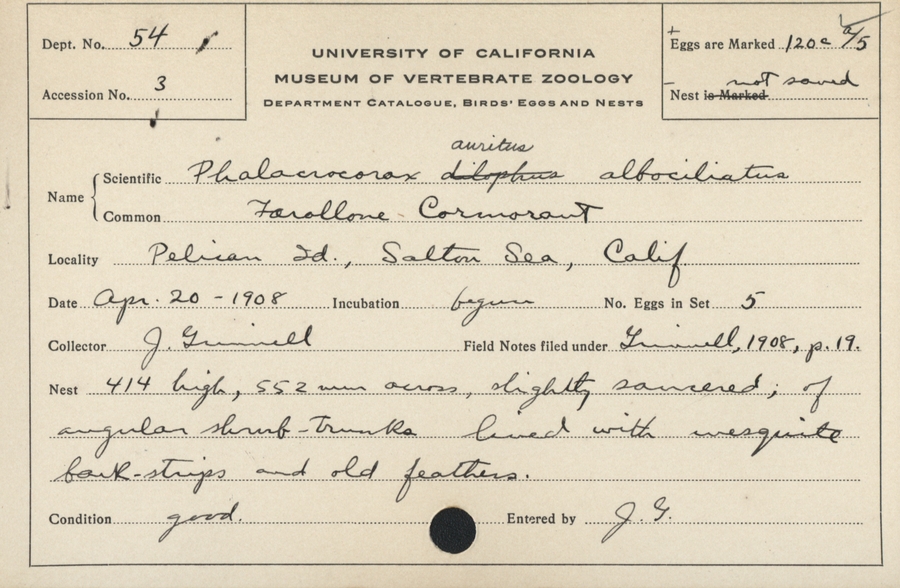 Dept. No. 54
Accession No. 3
UNIVERSITY OF CALIFORNIA
MUSEUM OF VERTEBRATE ZOOLOGY
DEPARTMENT CATALOGUE, BIRDS' EGGS AND NESTS
+
Eggs are Marked 120c a/5
not saved
– Nest is Marked
auritus
Name { Scientific Phalacrocorax dilophus albociliatus
Common Farollone Cormorant
Locality Pelican Id., Salton Sea, Calif
Date Apr. 20 - 1908 Incubation begun No. Eggs in Set 5
Collector J. Grinnell Field Notes filed under Grinnell, 1908, p. 19.
Nest 414 high, 552 mm across, slightly saucered; of
angular shrub-trunks lined with mesquite
bark-strips and old feathers.
Condition good. Entered by J. G.